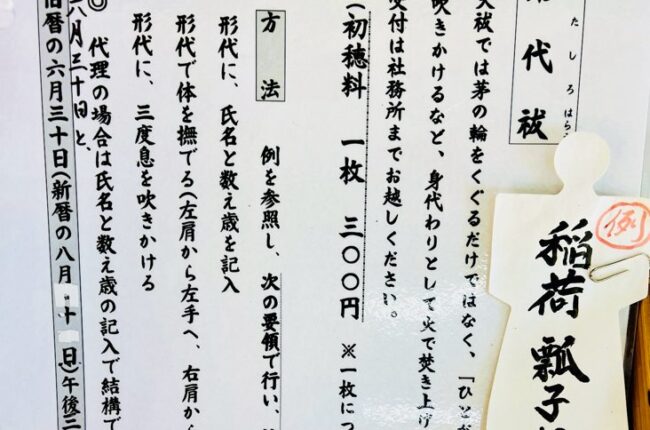 形代祓
たしろはらえ
大祓では茅の輪をくぐるだけではなく、「ひと
吹きかけるなど、身代わりとして火で焚き上げ
受付は社務所までお越しください。
(初穂料 一枚 三〇〇円 ※一枚につ
方法 例を参照し、次の要領で行い、
形代に、氏名と数え歳を記入
形代で体を撫でる(左肩から左手へ、右肩から
形代に、三度息を吹きかける
◎代理の場合は氏名と数え歳の記入で結構で
八月三十日と、
旧暦の六月三十日(新暦の八月十日)午後三
例
稲荷瓢子